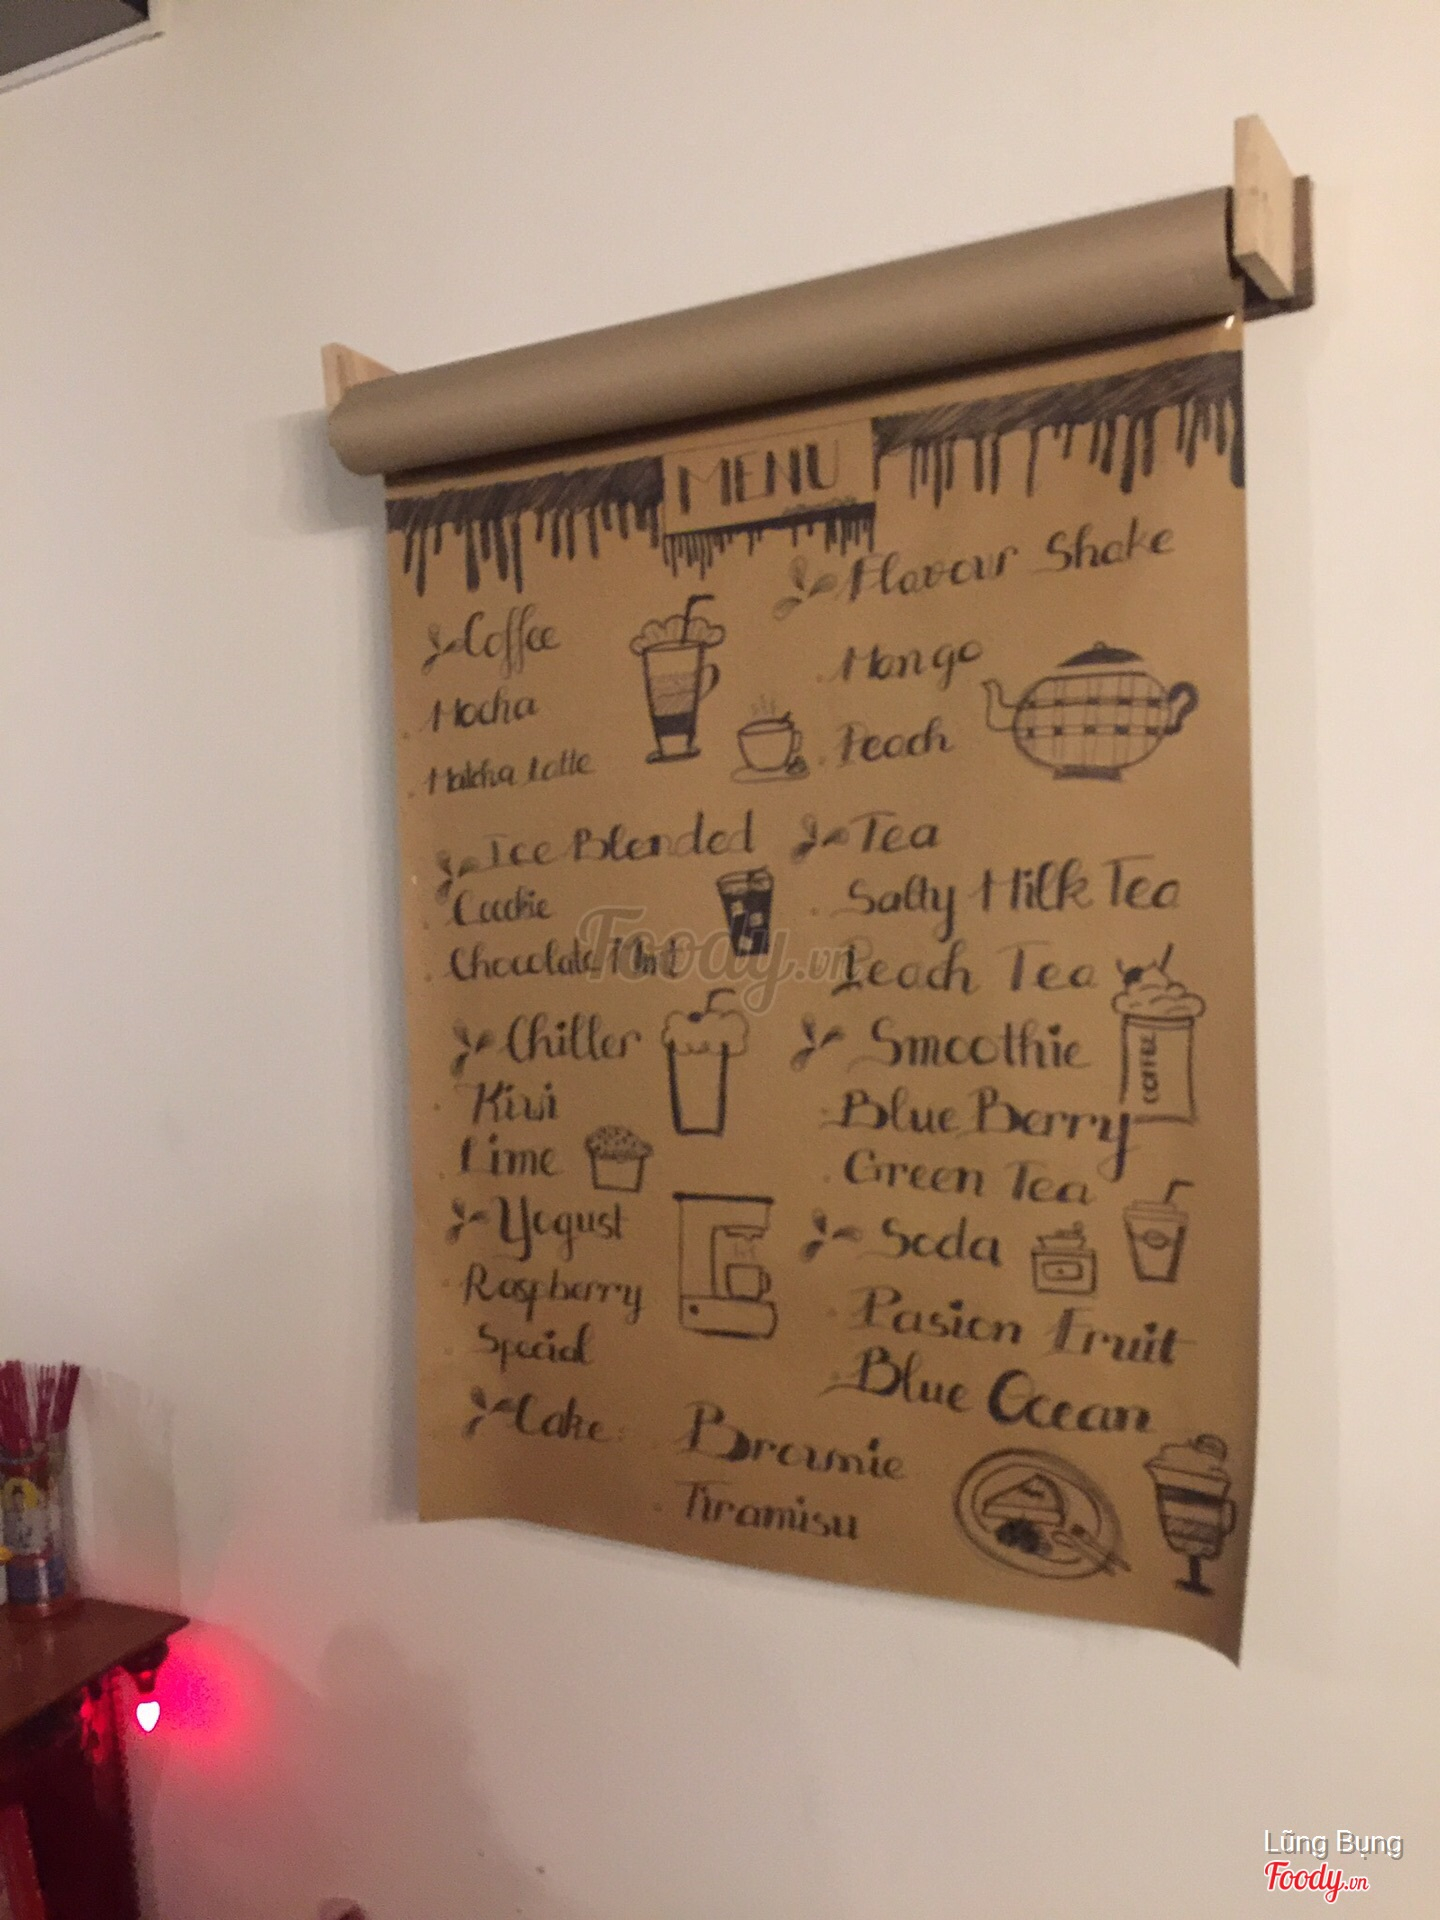 MENU
Coffee
Mocha
Matcha Latte
Ice Blended
Cookie
Chocolate Mint
Chiller
Kiwi
Lime
Yogust
Raspberry
Special
Cake:
Brownie
Tiramisu
Flavour Shake
Mango
Peach
Tea
Salty Milk Tea
Peach Tea
Smoothie
COFFEE
Blue Berry
Green Tea
Soda
Pasion Fruit
Blue Ocean
Foody.vn
Lũng Bụng
Foody.vn